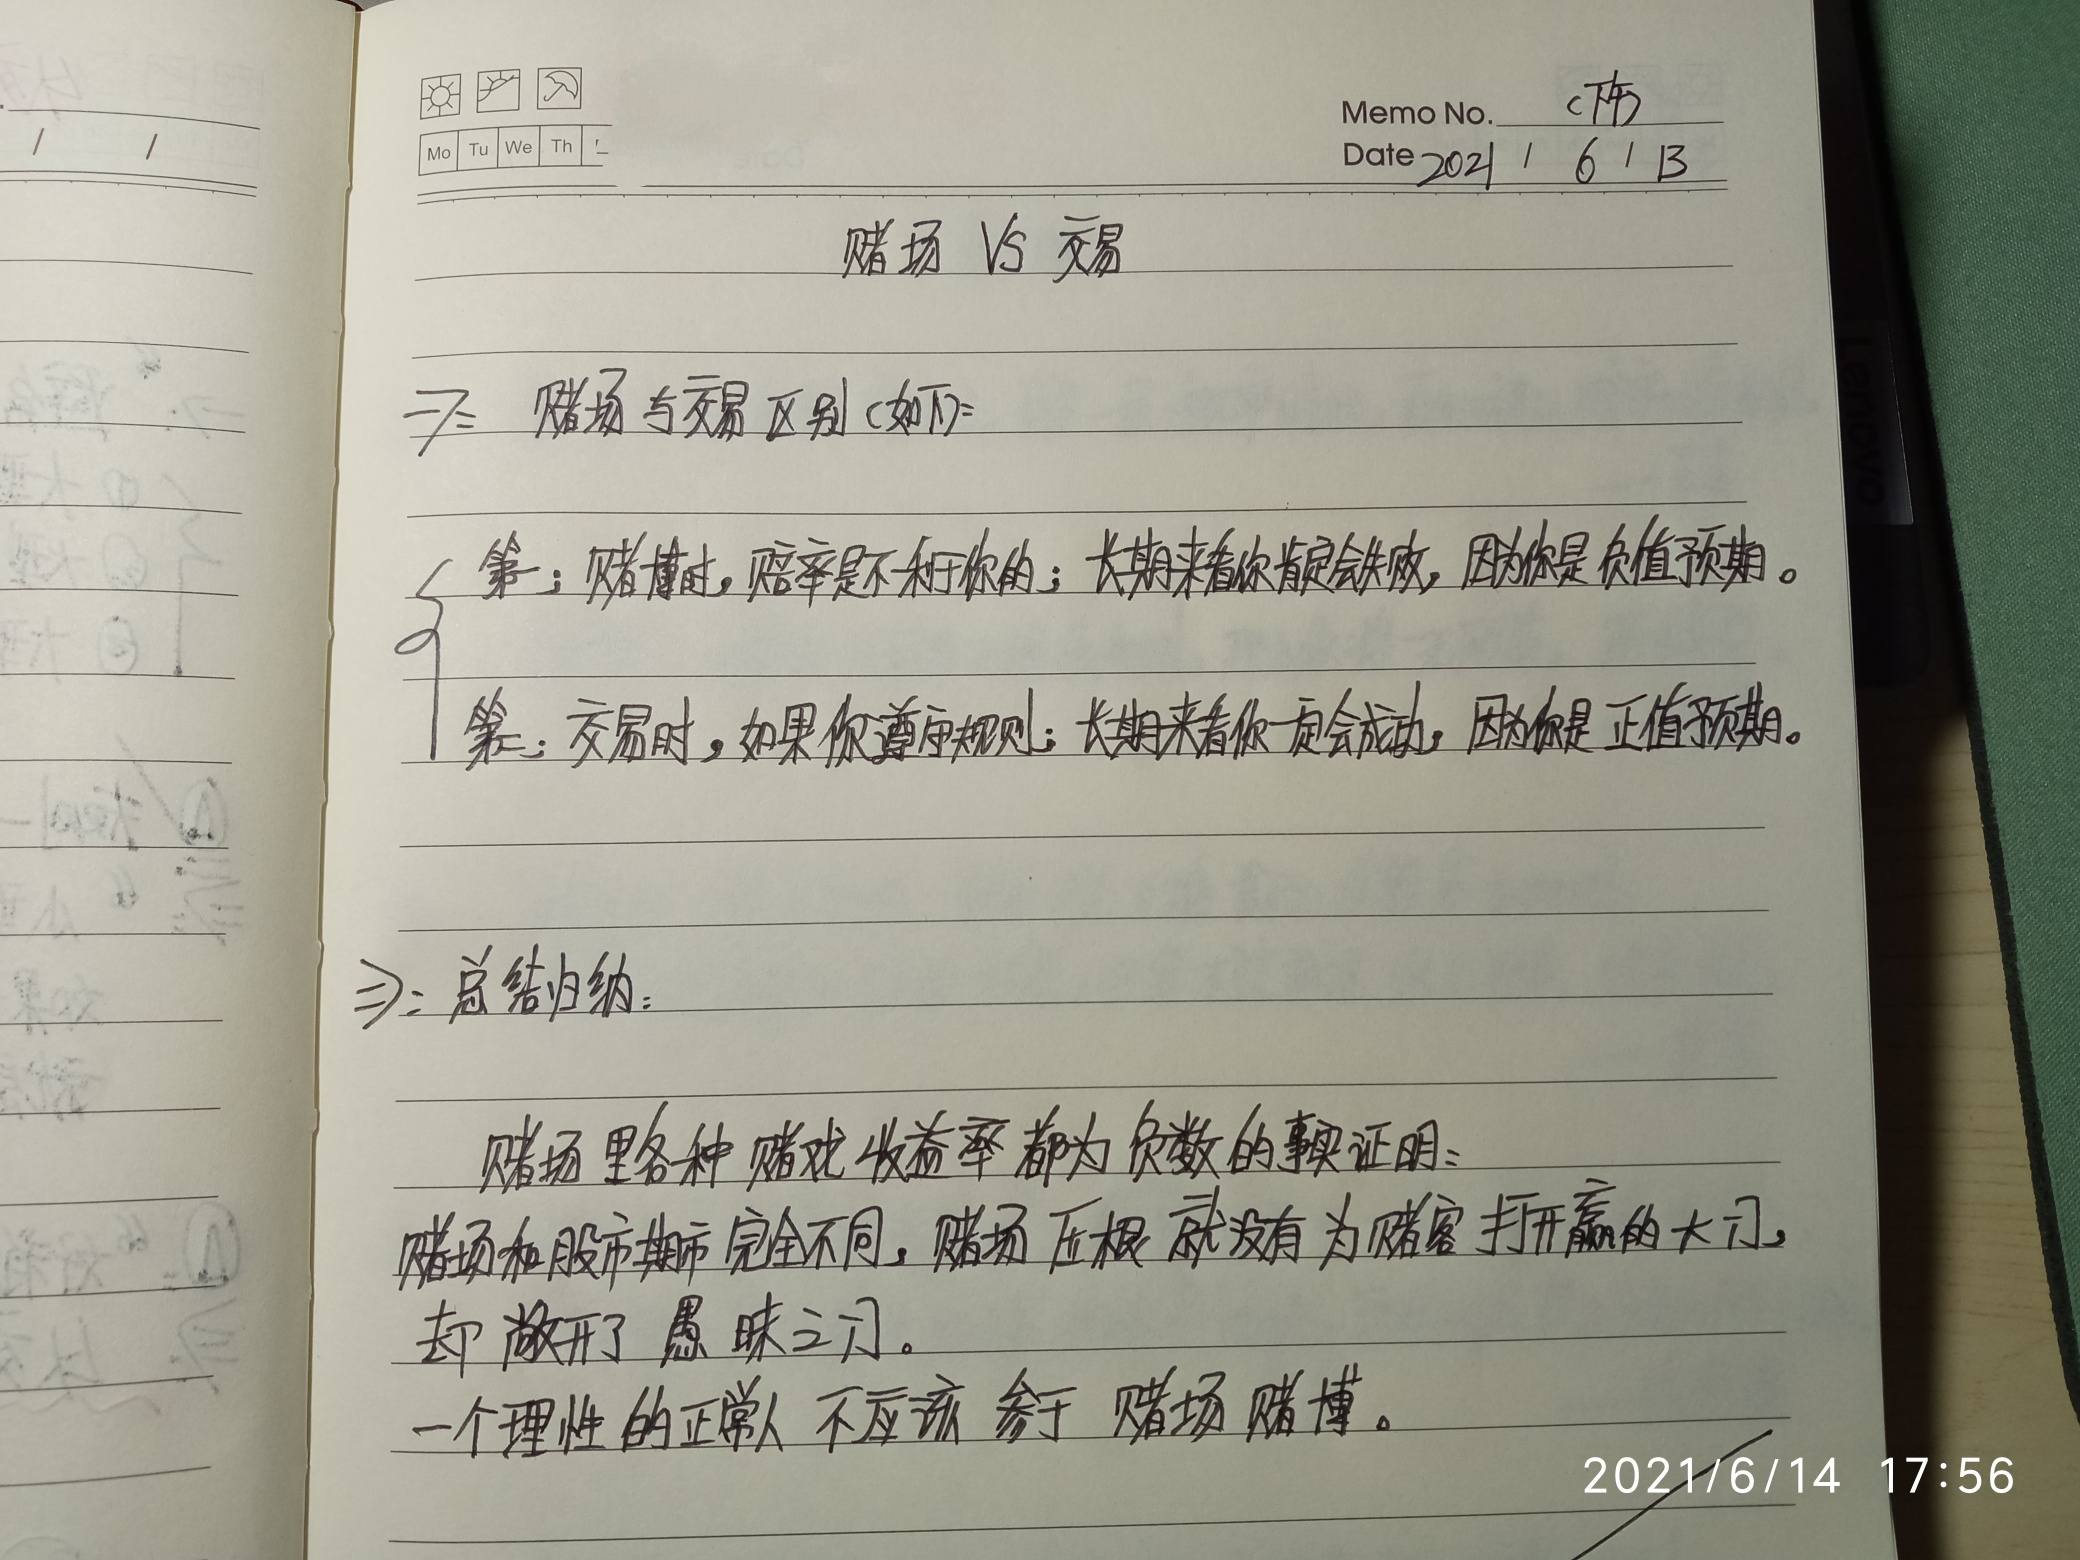 Memo No. (下午)
Mo Tu We Th
Date 2021 / 6 / 13
赌场 VS 交易
一、: 赌场与交易区别(如下):
第一; 赌博时,赔率是不利于你的; 长期来看你肯定会失败,因为你是负值预期。
第二; 交易时,如果你遵守规则; 长期来看你一定会成功,因为你是正值预期。
二、: 总结归纳:
赌场里各种赌戏收益率都为负数的事实证明:
赌场和股市期市完全不同,赌场压根就没有为赌客打开赢的大门,
却敞开了愚昧之门。
一个理性的正常人不应该参于赌场赌博。
Lenovo
2021/6/14 17:56